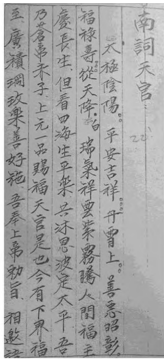 南詞天官
太極陰陽 平安吉祥 丹霄上 善惡昭彰
福祿壽從天降 瑞氣祥雲紫霧騰人間福主
慶長生 但看四海生平樂 共沐恩波定太平 吾
乃蒼帝木子上元一品賜福天官是也今有下界福
主廣積洞玟樂善好施 吾奉上帝勅旨 相邀